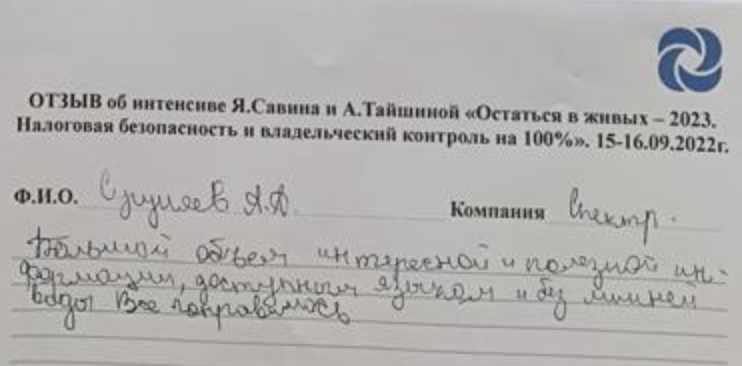 ОТЗЫВ об интенсиве Я.Савина и А.Тайшиной «Остаться в живых – 2023.
Налоговая безопасность и владельческий контроль на 100%». 15-16.09.2022г.
Ф.И.О. А.А. Компания Спектр.
Большой объем интересной и полезной ин-
формации, доступным языком и без лишней
воды. Все понравилось